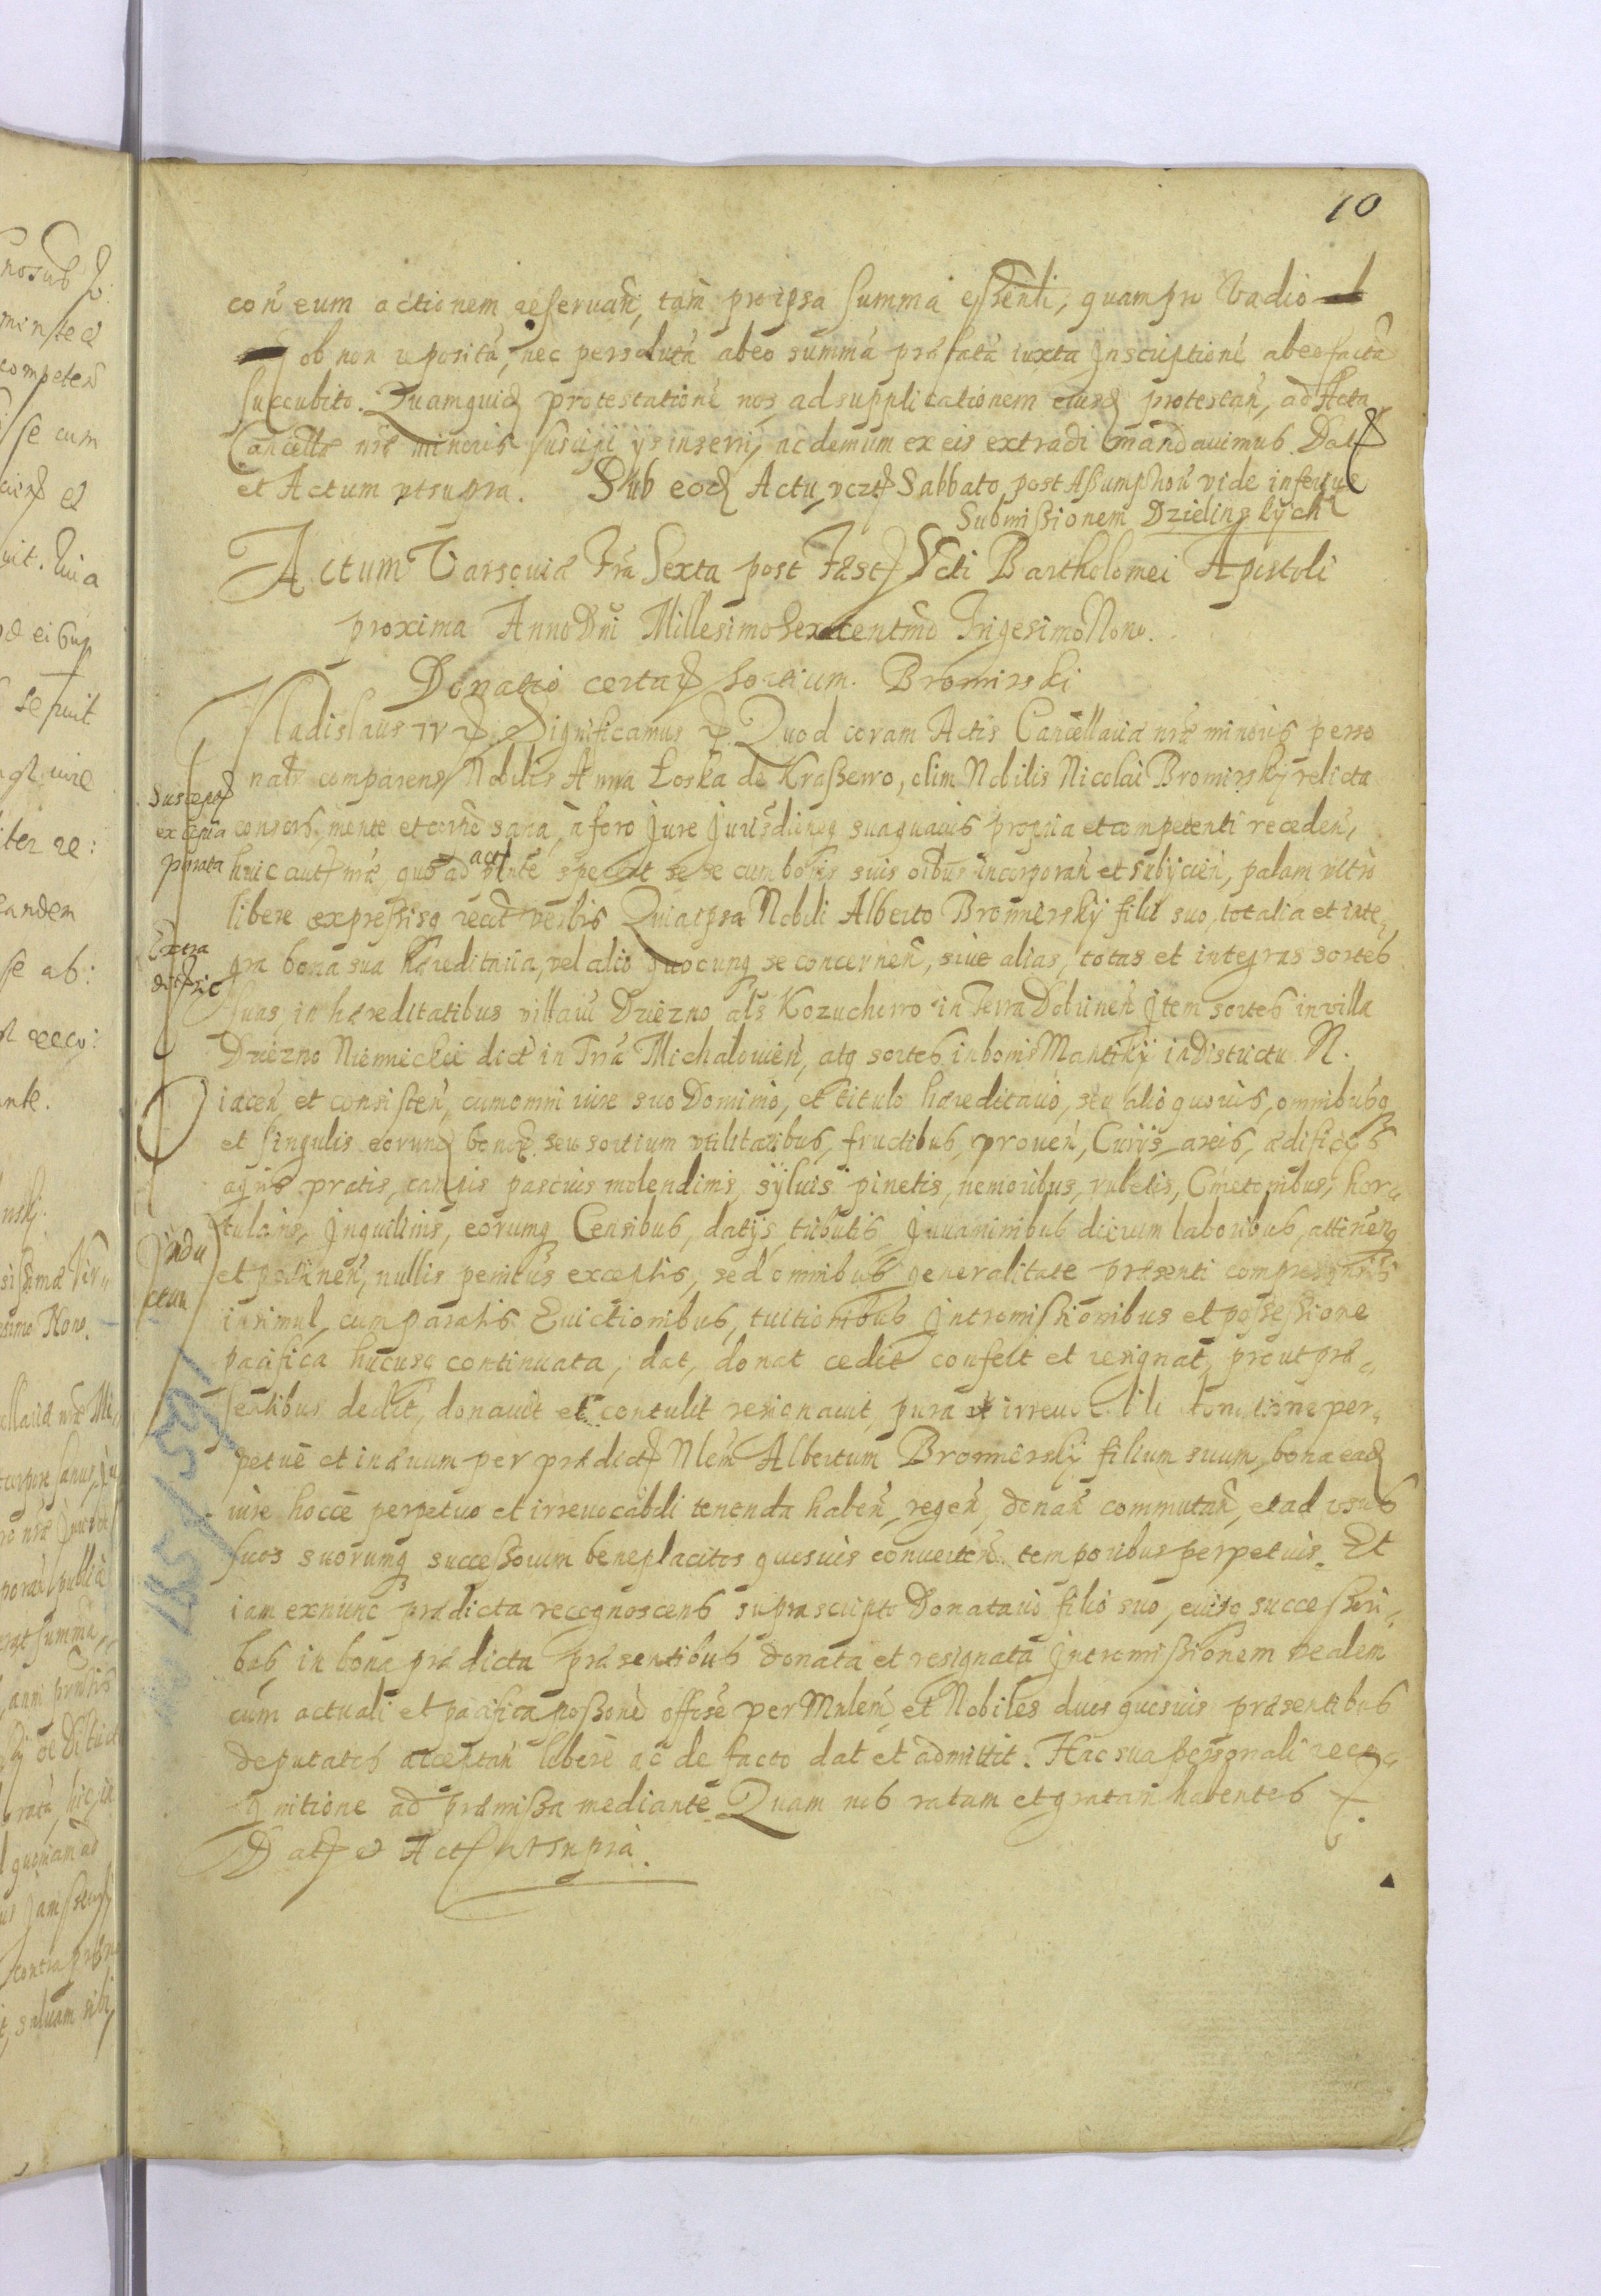 10
con̄ eum actionem reservan̄, tam̄ pro ipsa summa essenti, quam pro Vadio
ob non reposita, nec persoluta ab eo summa præfata iuxta Inscriptione ab eo facta
succubito. Quam quid protestatione nos ad supplicationem eiusd protestan̄, ad Acta
Cancell nræ minoris suscipi ijs inseri, ac demum ex eis extradi mandavimus. Dat
et Actum ut supra. Sub eod Actu, vczt Sabbato post Assumption̄ vide inferius
Submissionem Dzielinskych
Actum Varsoviæ Fra Sexta post Fest Scti Bartholomei Apostoli
proxima Anno Dni Millesimo Sexcentmo Trigesimo Nono.
Donatio certar sortium. Bromirski
Vladislaus IV Significamus Quod coram Actis Cancellariæ nræ minoris perso
natr comparens Nobilis Anna Łoska de Krassewo, olim Nobilis Nicolai Bromirsky relicta
consors, mente et corpre sana, à foro Jure Jurisdicneq sua quavis propria et competenti receden̄,
huic aut nræ, quo ad act pnte spectat se se cum bonis suis oibus incorporan̄ et subijcien̄, palam ultro
libere expressisq recut verbis Quia ipsa Nobili Alberto Bromirsky filii suo, totalia et inte
gra bona sua hæreditaria, vel alio quocunq se concernen̄, sive alias, totas et integras sortes
suas in hæreditatibus villaru Dziezno als Kozuchowo in Terra Dobrinen̄ Item sortes in villa
Dziezno Niemieckie dict in Tra Michalovien̄, atq sortes in bonis Mantiky in Districtu N.
iacen̄, et consisten̄, cum omni iure suo Dominio, et titulo hæreditario, seu alio quovis, omnibusq
et singulis eorund bonor seu sortium utilitatibus, fructibus, proven̄, Curijs, areis, ædificijs
agris pratis, campis pascuis molendinis, sylvis pinetis, nemoribus, rubetis, Cmetonibus, hor
tulanis, Inquilinis, eorumq Censibus, datijs tributis Juvaminibus dierum laboribus, attinen̄q
et pertinen̄, nullis penitus exceptis, sed omnibus generalitate præsenti comprehensis
insimul, cum paratis Evictionibus, tuitionibus Intromissionibus et possessione
pacifica hucusq continuata, dat, donat cedit confert et resignat, prout præ
sentibus dedit, donavit et contulit resignavit pura et irrevocabili donatione per
petue et in ævum per prædict Nlem Albertum Bromirsky filium suum, bona ead
iure hocce perpetuo et irrevocabili tenenda haben̄, regen̄, donan̄ commutan̄, et ad usus
suos suorumq successorum beneplacitos quosvis converten̄ temporibus perpetuis. Et
iam ex nunc prædicta recognoscens suprascripto Donatario filio suo, eiusq successori
bus, in bona prædicta præsentibus donata et resignata Intromissionem realem
cum actuali et pacifica possone offose per Mnlem, et Nobiles duos quosvis præsentibus
deputatos acceptan̄ libere ac de facto dat et admittit. Hac sua personali recog
nitione ad præmissa mediante. Quam nos ratam et gratam habentes
Dat et Act ut supra.
Suscept
ex copia
porata
Extra
dit sic
Indu
ctum